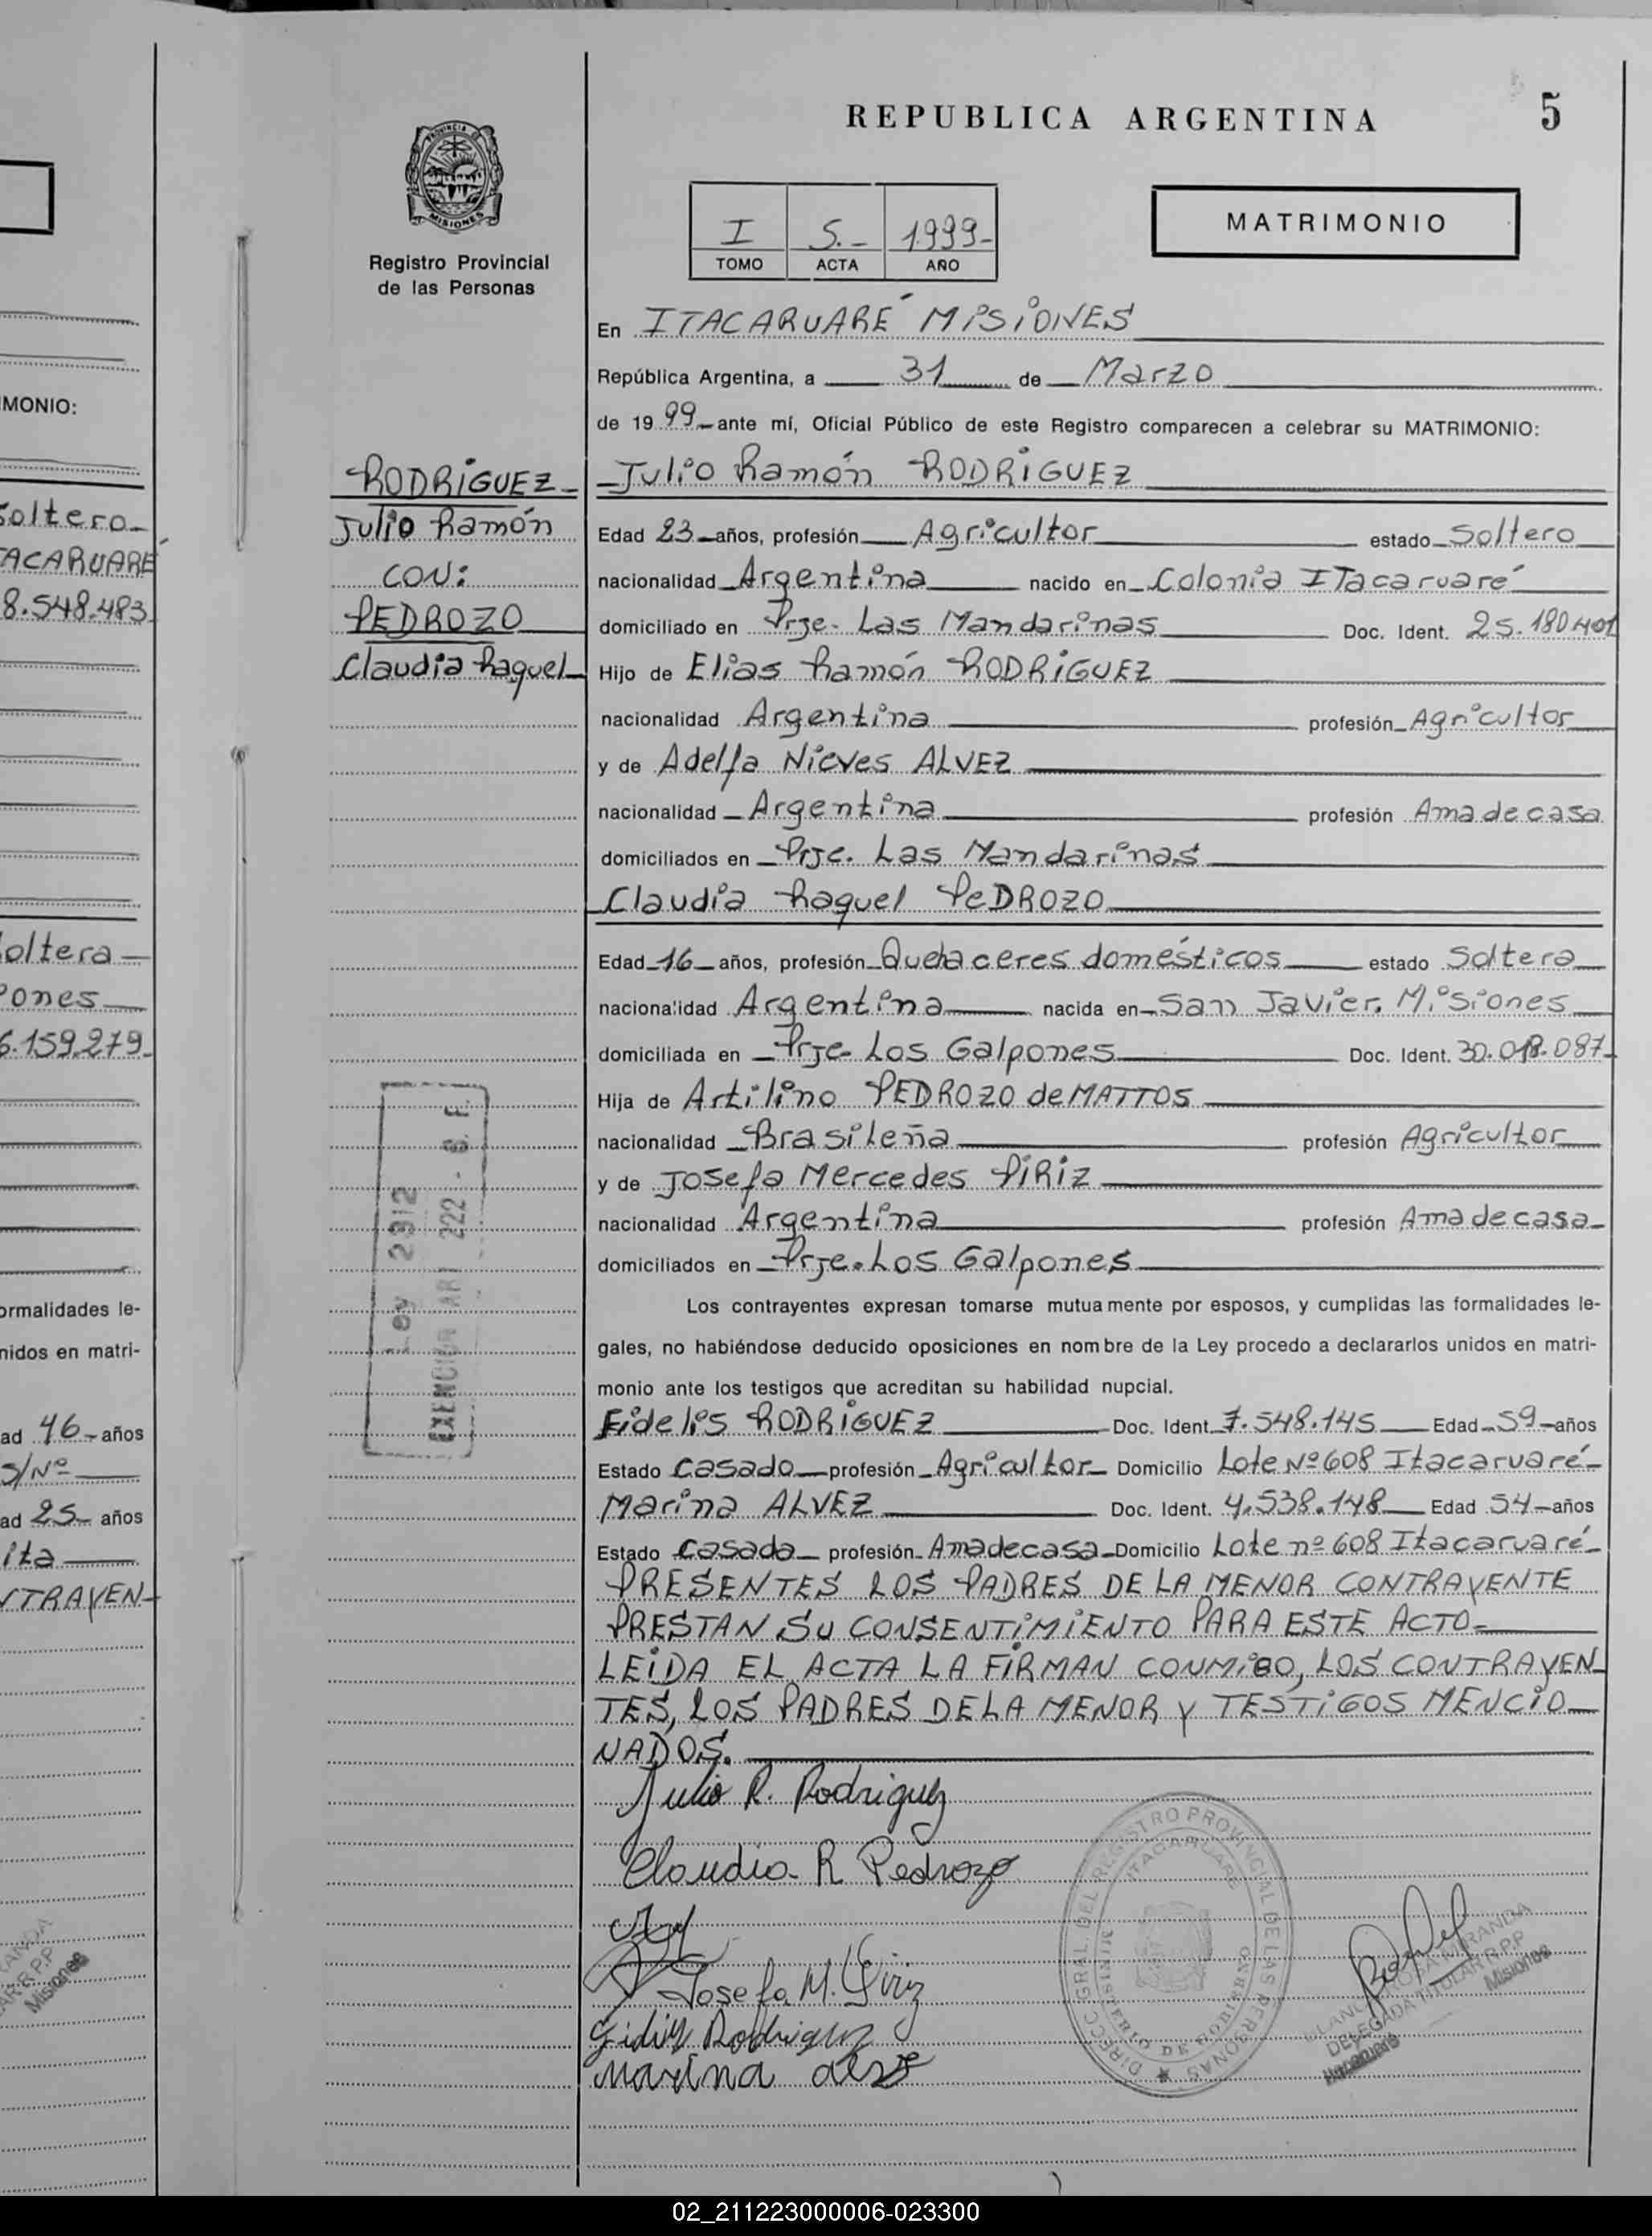 REPUBLICA ARGENTINA
5
MISIONES
Registro Provincial
de las Personas
I 5.- 1999-
TOMO ACTA AÑO
MATRIMONIO
En ITACARUARÉ MISIONES
República Argentina, a 31 de Marzo
de 1999 ante mí, Oficial Público de este Registro comparecen a celebrar su MATRIMONIO:
RODRIGUEZ
Julio Ramón
CON:
PEDROZO
Claudia Raquel
Julio Ramón RODRIGUEZ
Edad 23 años, profesión Agricultor estado Soltero
nacionalidad Argentina nacido en Colonia ITacaruaré
domiciliado en Prje. Las Mandarinas Doc. Ident. 25.180.401
Hijo de Elias Ramón RODRIGUEZ
nacionalidad Argentina profesión Agricultor
y de Adelfa Nieves ALVEZ
nacionalidad Argentina profesión Ama de casa
domiciliados en Prje. Las Mandarinas
Claudia Raquel PEDROZO
Edad 16 años, profesión Quehaceres domésticos estado Soltera
nacionalidad Argentina nacida en San Javier. Misiones
domiciliada en Prje Los Galpones Doc. Ident. 30.018.087
Hija de Artilino PEDROZO de MATTOS
nacionalidad Brasileña profesión Agricultor
y de Josefa Mercedes PIRIZ
nacionalidad Argentina profesión Ama de casa
domiciliados en Prje. Los Galpones
Los contrayentes expresan tomarse mutuamente por esposos, y cumplidas las formalidades le-
gales, no habiéndose deducido oposiciones en nombre de la Ley procedo a declararlos unidos en matri-
monio ante los testigos que acreditan su habilidad nupcial.
Fidelis RODRIGUEZ Doc. Ident. 7.548.145 Edad 59 años
Estado Casado profesión Agricultor Domicilio Lote Nº 608 Itacaruaré
Marina ALVEZ Doc. Ident. 4.538.148 Edad 54 años
Estado Casada profesión Ama de casa Domicilio Lote nº 608 Itacaruaré
PRESENTES LOS PADRES DE LA MENOR CONTRAYENTE
PRESTAN SU CONSENTIMIENTO PARA ESTE ACTO
LEIDA EL ACTA LA FIRMAN CONMIGO, LOS CONTRAYEN
TES, LOS PADRES DE LA MENOR Y TESTIGOS MENCIO
NADOS.
Julio R. Rodriguez
Claudia R Pedrozo
Josefa M. Piriz
Rodriguez
Marina
DIRECC. GRAL. DEL REGISTRO PROVINCIAL DE LAS PERSONAS
ITACARUARE
MINISTERIO DE GOBIERNO
MIRANDA
DELEGADA TITULAR R.P.P
Misiones
Ley 2912
EXENCION ART 222 -
IMONIO:
Soltero
TACARUARÉ
8.548.483
oltera
ones
6.159.279
ormalidades le-
nidos en matri-
ad 46 años
S/Nº
ad 25 años
ita
NTRAYEN
Misiones
02_211223000006-023300